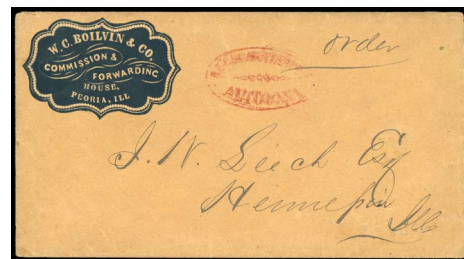 W. C. BOILVIN & CO.
COMMISSION &
FORWARDING
HOUSE,
PEORIA, ILL
order
J. W. Leech Esq
Hennepin
Ills